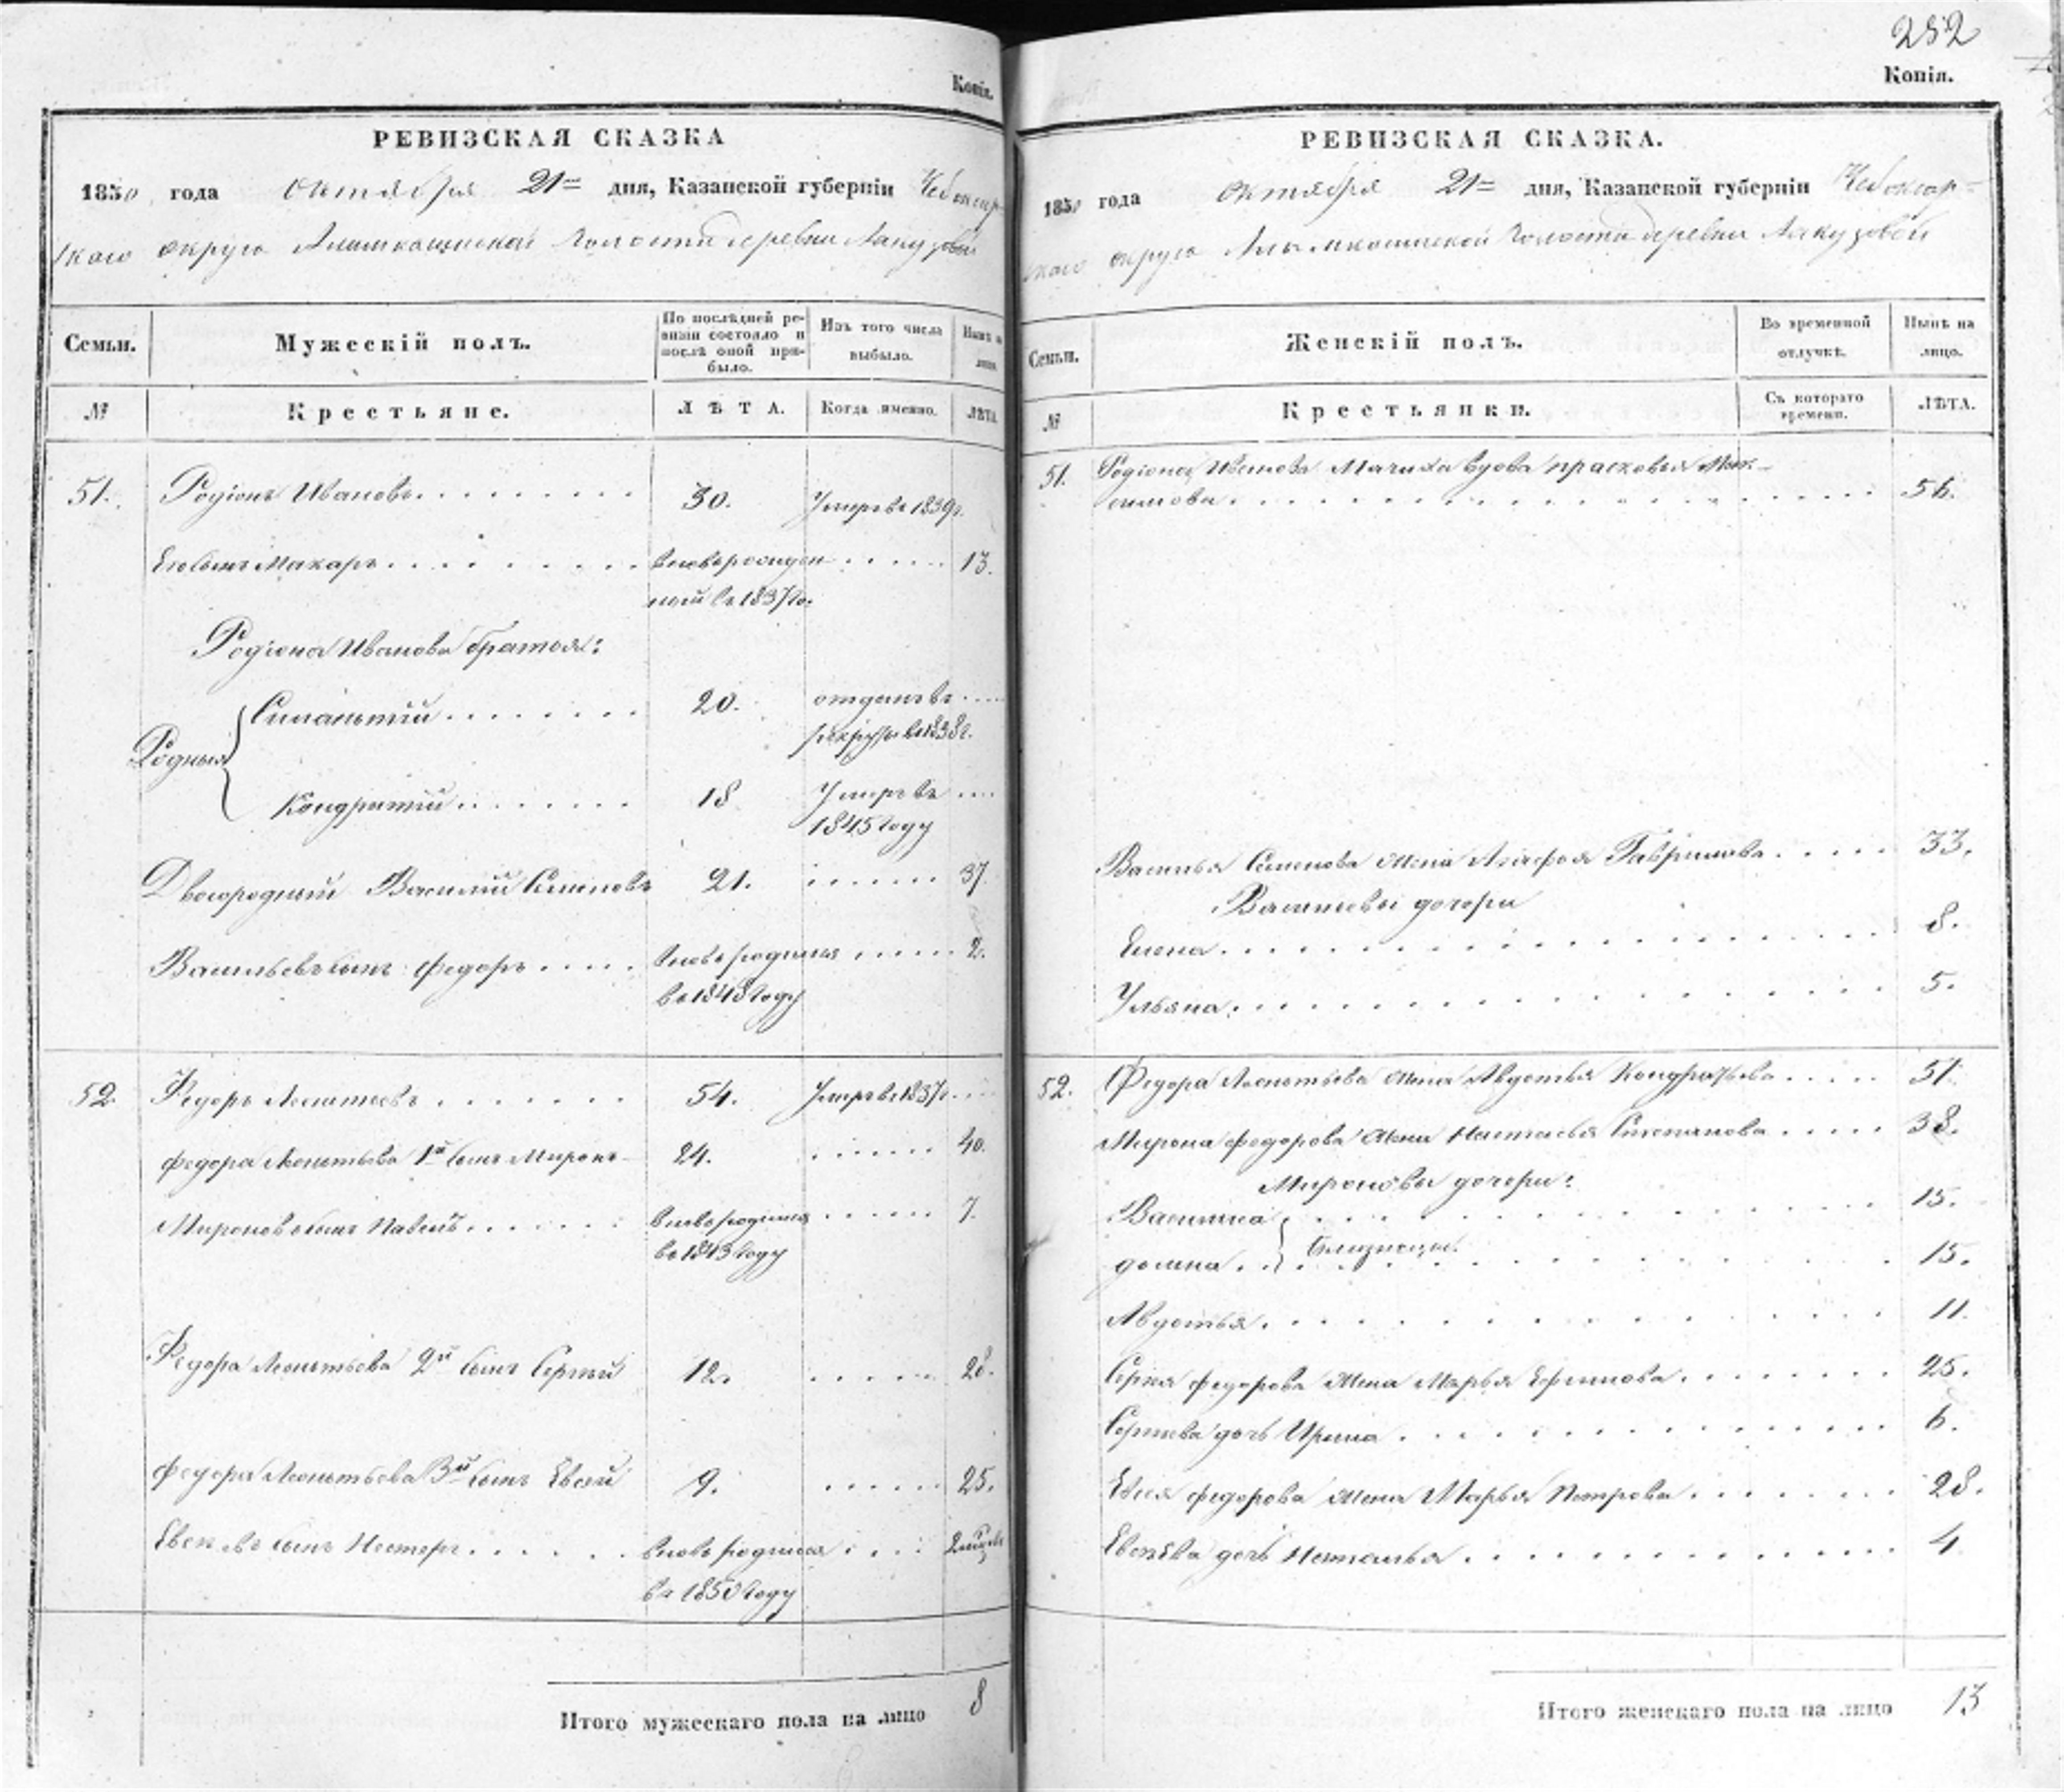 Копія.
РЕВИЗСКАЯ СКАЗКА
1850 года октября 21го дня, Казанской губерніи Чебоксар-
скаго округа волости деревни Лакузовой
Семьи.
Мужескій полъ.
По послѣдней ре-
визіи состояло и
послѣ оной при-
было.
Изъ того числа
выбыло.
Нынѣ на
лицо.
№
Крестьяне.
ЛѢТА.
Когда именно.
ЛѢТА.
51. Родіонъ Ивановъ 30. Умеръ въ 1839г.
Его сынъ Макаръ вновьрожден 13.
ный въ 1837го.
Родіона Иванова братья:
Родныя
20. отданъ въ
рекруты въ 1838г.
Кондратій 18 Умеръ въ
1845 году
Двоюродный Василий Семеновъ 21. 37.
Васильевъ сынъ Федоръ вновь родился 2.
въ 1848 году
52. Федоръ Леонтьевъ 54. Умеръ въ 1837г.
Федора Леонтьева 1й сынъ Миронъ 24. 40.
Мироновъ сынъ Павелъ вновь родился 7.
въ 1843 году
Федора Леонтьева 2й сынъ Сергей 12. 28.
Федора Леонтьева 3й сынъ Евсей 9. 25.
Евсеевъ сынъ Нестеръ вновь родился
въ 1850 году
Итого мужескаго пола на лицо 8
252
Копія.
РЕВИЗСКАЯ СКАЗКА.
1850 года октября 21го дня, Казанской губерніи Чебоксар-
скаго округа волости деревни Лакузовой
Семьи.
Женскій полъ.
Во временной
отлучкѣ.
Нынѣ на
лицо.
№
Крестьянки.
Съ котораго
времени.
ЛѢТА.
51. Родіона Иванова Мачиха вдова Прасковья Мак-
симова 56.
Василья Семенова жена Агафья Гаврилова 33.
Васильевы дочери
Елена 8.
Ульяна 5.
52. Федора Леонтьева жена Авдотья Кондратьева 51.
Мирона Федорова жена Настасья Степанова 38.
Мироновы дочери:
Василиса 15.
близнецы.
Домна 15.
Авдотья 11.
Сергея Федорова жена Марья Ефимова 25.
Сергеева дочь Ирина 6.
Евсея Федорова жена Марья Петрова 28.
Евсеева дочь Наталья 4
Итого женскаго пола на лицо 13